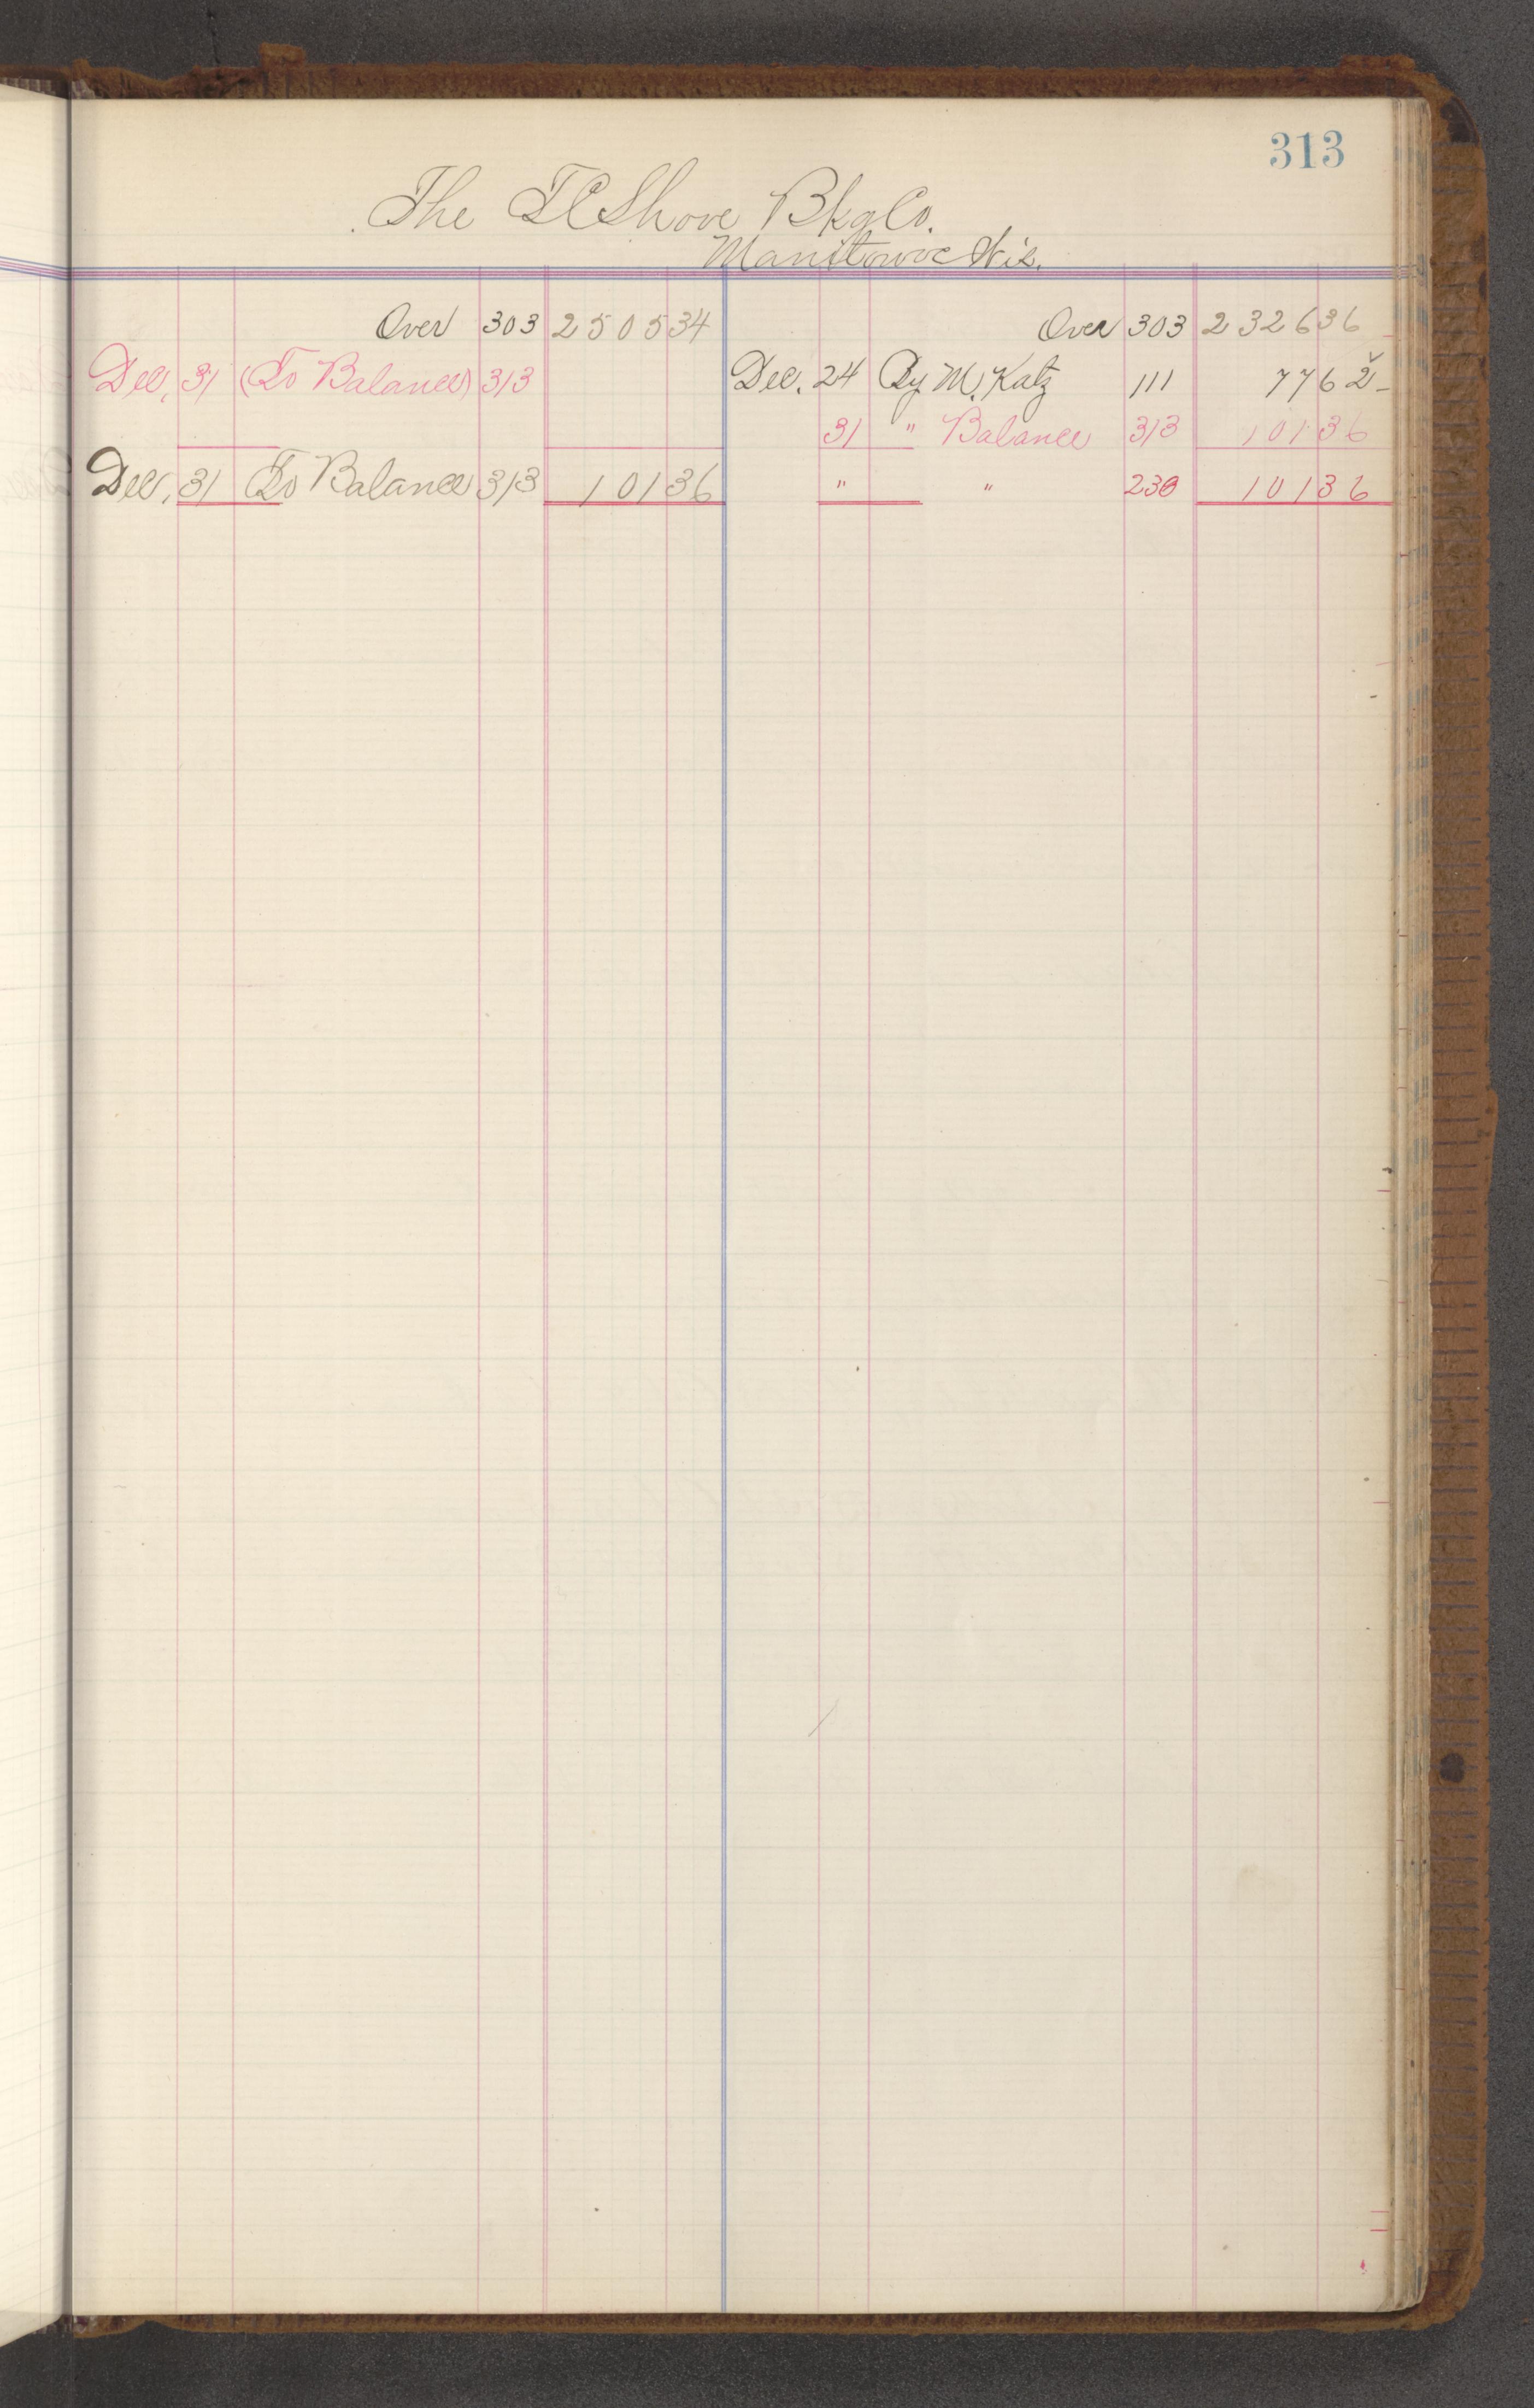 313
The T C Shove Bkg Co.
Manitowoc Wis.
Over 303 2505 34 Over 303 2326 36
Dec. 31 (To Balance) 313 Dec. 24 By M. Katz 111 77 62
31 " Balance 313 101 36
Dec. 31 To Balance 313 101 36 " " 230 101 36